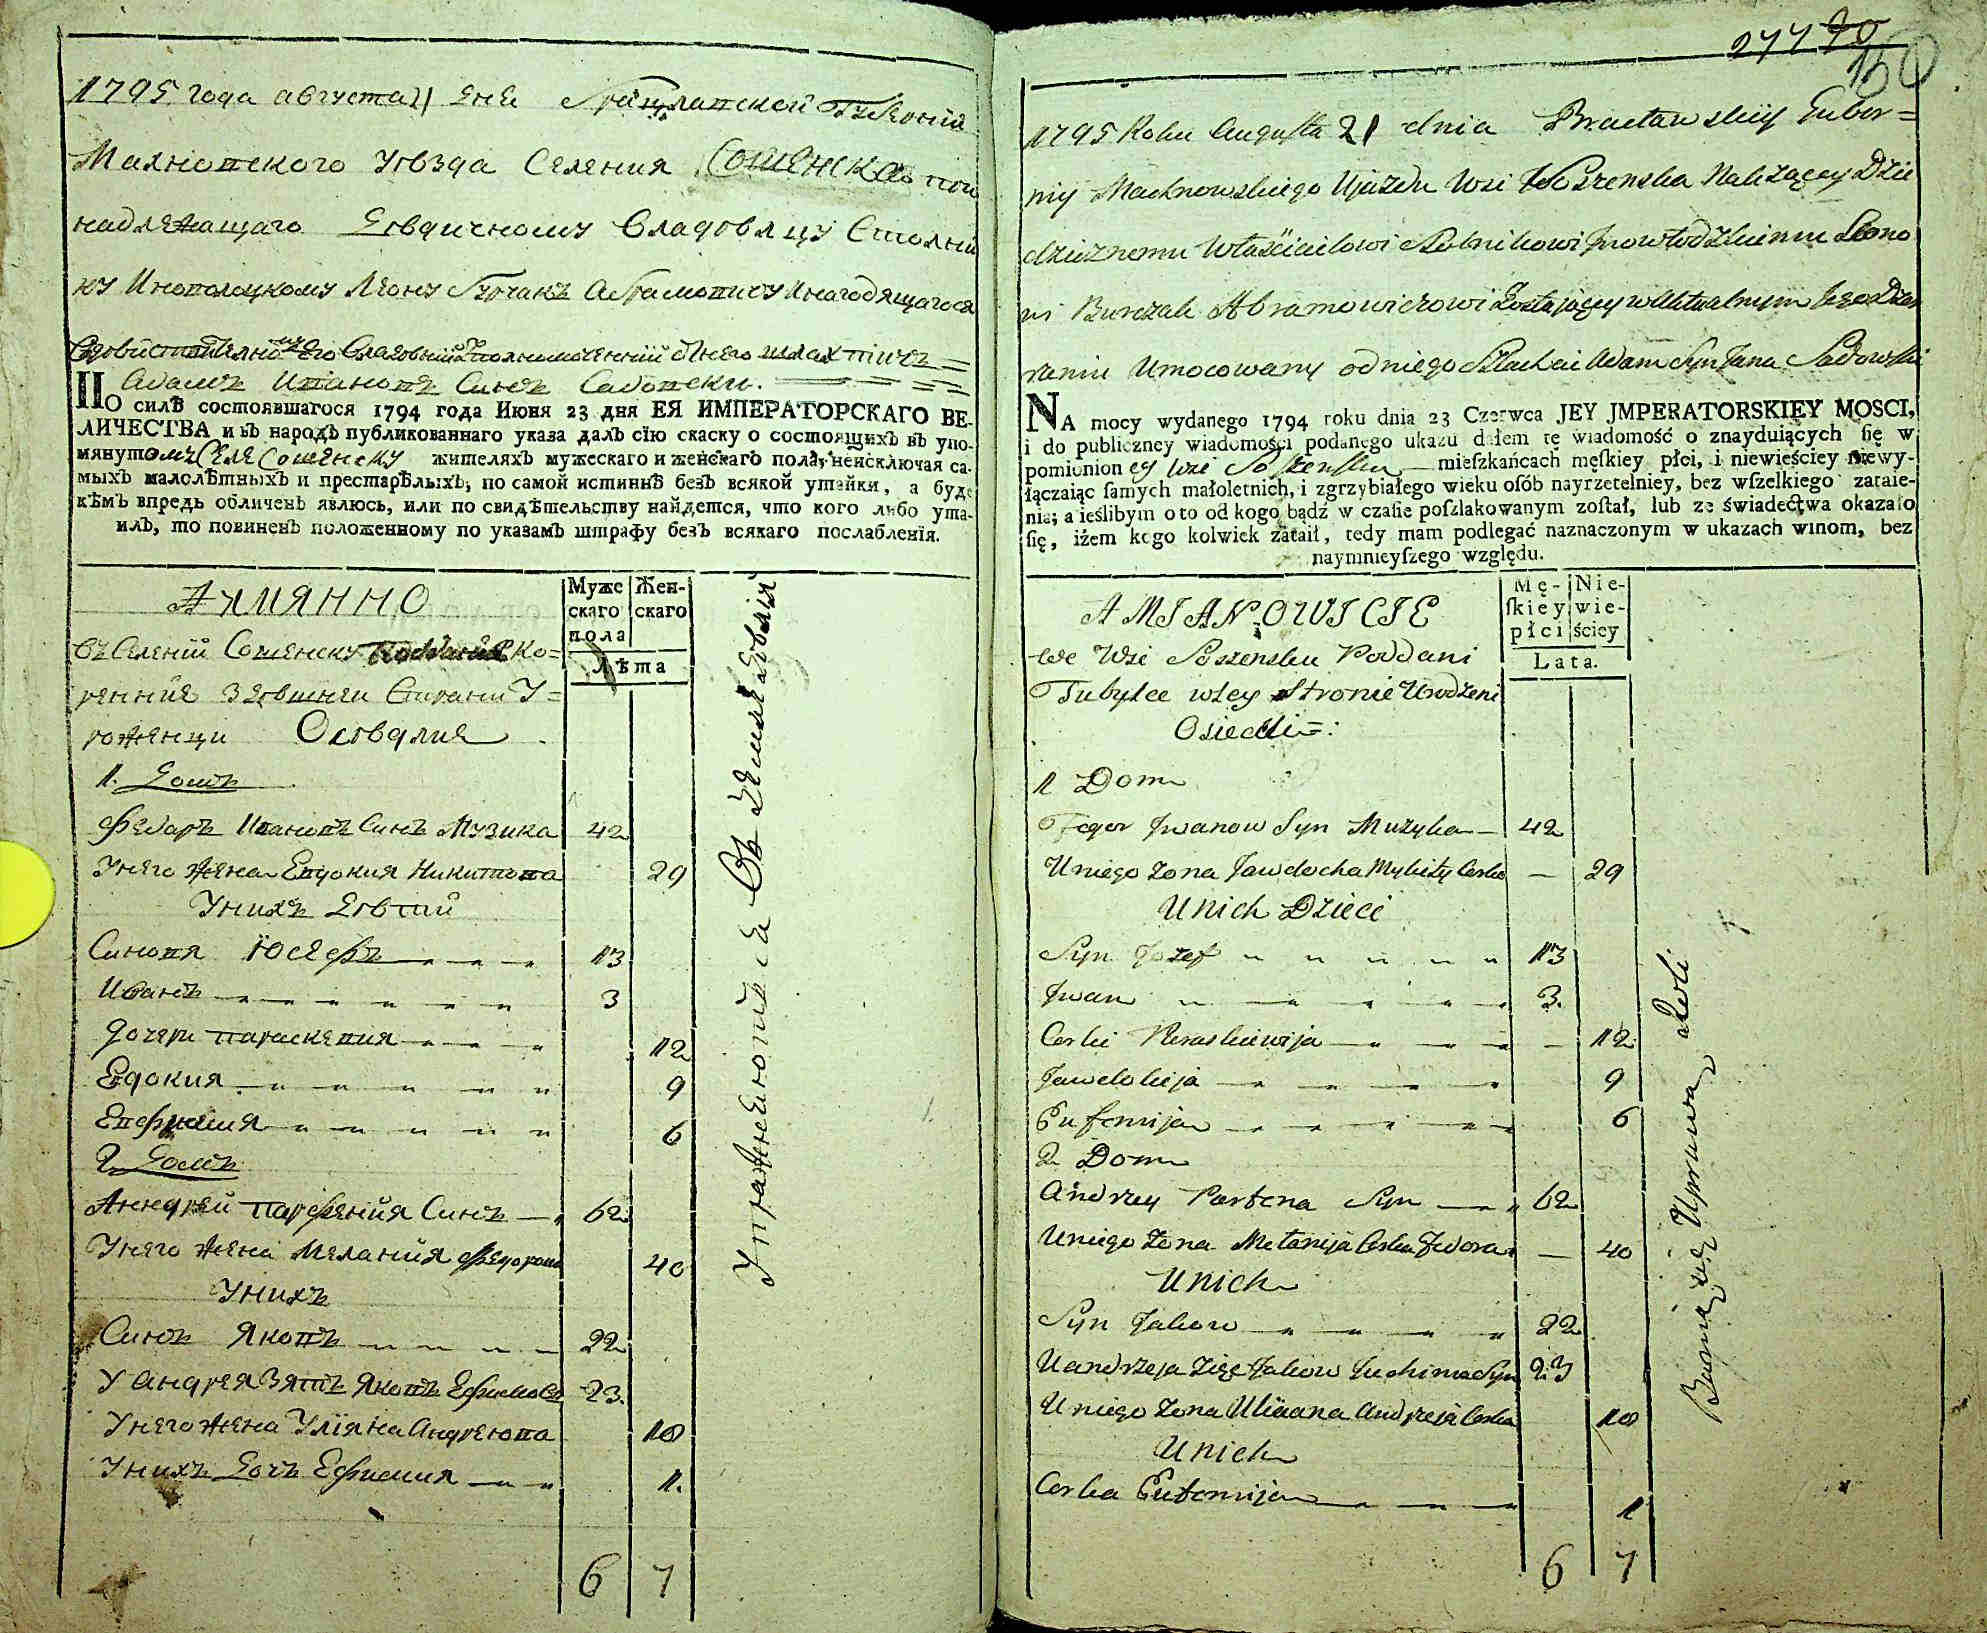 1795 года августа 21 дня Брацлавской Губерний
Махновского уѣзда Селения Сошенска при
надлежащаго Дѣдичному Владѣлцу Столни
ку Иновлоцкому Леону Бурчакъ Абрамовичу Инагодящагося
полномоченний отнего шляхтичъ
Адамъ Ивановъ Синъ Садовски.
ПО силѣ состоявшагося 1794 года Июня 23 дня ЕЯ ИМПЕРАТОРСКАГО ВЕ-
ЛИЧЕСТВА и въ народъ публикованнаго указа далъ сїю скаску о состоящихъ въ упо-
мянутомъ Селе Сошенску жителяхъ мужескаго и женскаго пола, неисключая са-
мыхъ малолѣтныхъ и престарѣлыхъ, по самой истиннѣ безъ всякой утайки, а буде
кѣмъ впредь обличенъ явлюсь, или по свидѣтельству найдется, что кого либо ута-
илъ, то повиненъ положенному по указамъ штрафу безъ всякаго послабленїя.
АИМЯННО
Муже
скаго
пола
Жен-
скаго
Лѣта
въ Селений Сошенску Поддание Ко=
ренние Здѣшней Сторони У=
роженци Осѣдлие
1. Домъ
Федоръ Ивановъ Синъ Музика 42
Унего Жена Евдокия Никитова 29
Унихъ Дѣтий
Синовя Юсефъ 13
Иванъ 3
Дочери Параскевия 12
Евдокия 9
Евфимия 6
2 Домъ
Андрей Парфения Синъ 62
Унего Жена Мелания Федорова 40
Унихъ
Синъ Яковъ 22
У Андрея Зять Яковъ Ефимовъ 23.
Унего Жена Улїяна Андреюва 18
Унихъ Дочъ Ефимия 1.
6 7
Упражнеюотца Въ Земледелии
27770
150
1795 Roku Augusta 21 dnia Bractawskiiy Guber=
nij Machnowskiego Ujazdu Wsi Soszenska Należącey Dzie
dzicznemu Właścicilowi Stolnikowi Inowłodzkiemu Leono
wi Burczak Abramowiczowi Zostający w Aktualnym Jego Dzie
rżeniu Umocowany od niego Szlachcic Adam Syn Jana Sadowski
NA mocy wydanego 1794 roku dnia 23 Czerwca JEY JMPERATORSKIEY MOSCI,
i do publiczney wiadomości podanego ukazu dałem tę wiadomość o znayduiących się w
pomienion ey Wsi Soszensku mieſzkańcach męſkiey płci, i niewieściey niewy-
łączaiąc ſamych małoletnich, i zgrzybiałego wieku oſób nayrzetelniey, bez wſzelkiego zataie-
nia; a ieślibym o to od kogo bądź w czaſie poſzlakowanym zoſtał, lub ze świadectwa okazało
ſię, iżem kogo kolwiek zataił, tedy mam podlegać naznaczonym w ukazach winom, bez
naymnieyſzego względu.
AMIANOWICIE
Mę-
ſkiey
płci
Nie-
wie-
ściey
Lata.
we Wsi Soszensku Poddani
Tubylce wtey Stronie Urodzeni
Osiedli=:
1 Dom
Fegor Jwanow Syn Mużyka 42
Uniego żona Jawdocha Mykity Corka 29
Unich Dzieci
Syn Jozef 13
Jwan 3.
Corki Paraskiewija 12
Jawdokija 9
Eufemija 6
2 Dom
Andrzey Partena Syn 62
Uniego żona Mełanija Corka Fedora 40
Unich
Syn Jakow 22
U Andrzeja Zięć Jakow Juchima Syn 23
Uniego żona Uliana Andrzeja Corka 18
Unich
Corka Eufemija 1
6 7
Bawią się Uprawą Roli